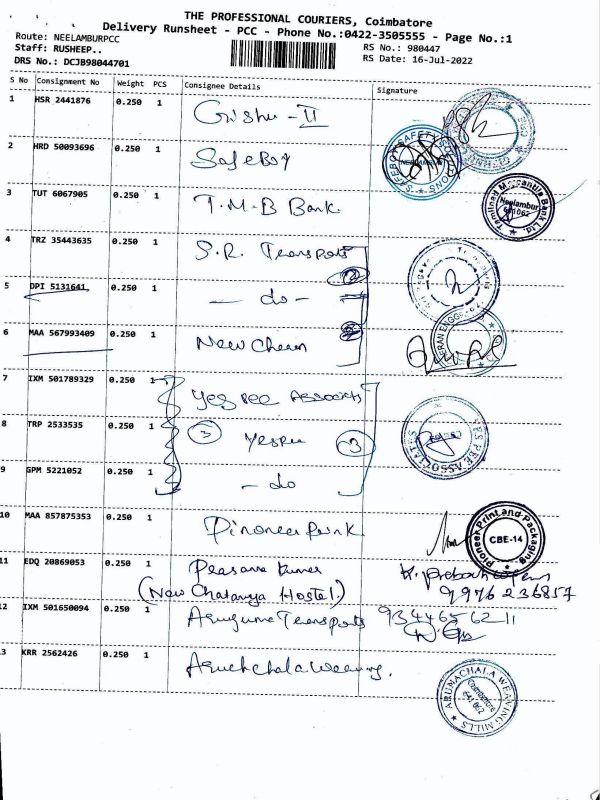 THE PROFESSIONAL COURIERS, Coimbatore
Delivery Runsheet - PCC - Phone No.:0422-3505555 - Page No.:1
Route: NEELAMBURPCC
RS No.: 980447
Staff: RUSHEEP..
RS Date: 16-Jul-2022
DRS No.: DCJB98044701
S No Consignment No Weight PCS Consignee Details Signature
1 HSR 2441876 0.250 1
2 HRD 50093696 0.250 1 SafeBoy
3 TUT 6067905 0.250 1 T.M.B Bank
Tamilnad Mercantile Bank Ltd.
Neelambur
641062
4 TRZ 35443635 0.250 1 S.R. Transports
5 DPI 5131641 0.250 1 - do -
6 MAA 567993409 0.250 1 New Chem
7 IXM 501789329 0.250 1 Yes Pee Associats
YES PEE ASSOCIATES
8 TRP 2533535 0.250 1 3 3
9 GPM 5221052 0.250 1 - do
10 MAA 857875353 0.250 1
Pioneer Print and Packaging
CBE-14
11 EDQ 20869053 0.250 1 Prasana Kumar
(New Chatanya Hostel.) 9976236857
12 IXM 501650094 0.250 1 Transports 9344656211
13 KRR 2562426 0.250 1
ARUNACHALA WEAVING MILLS
Coimbatore
641 062